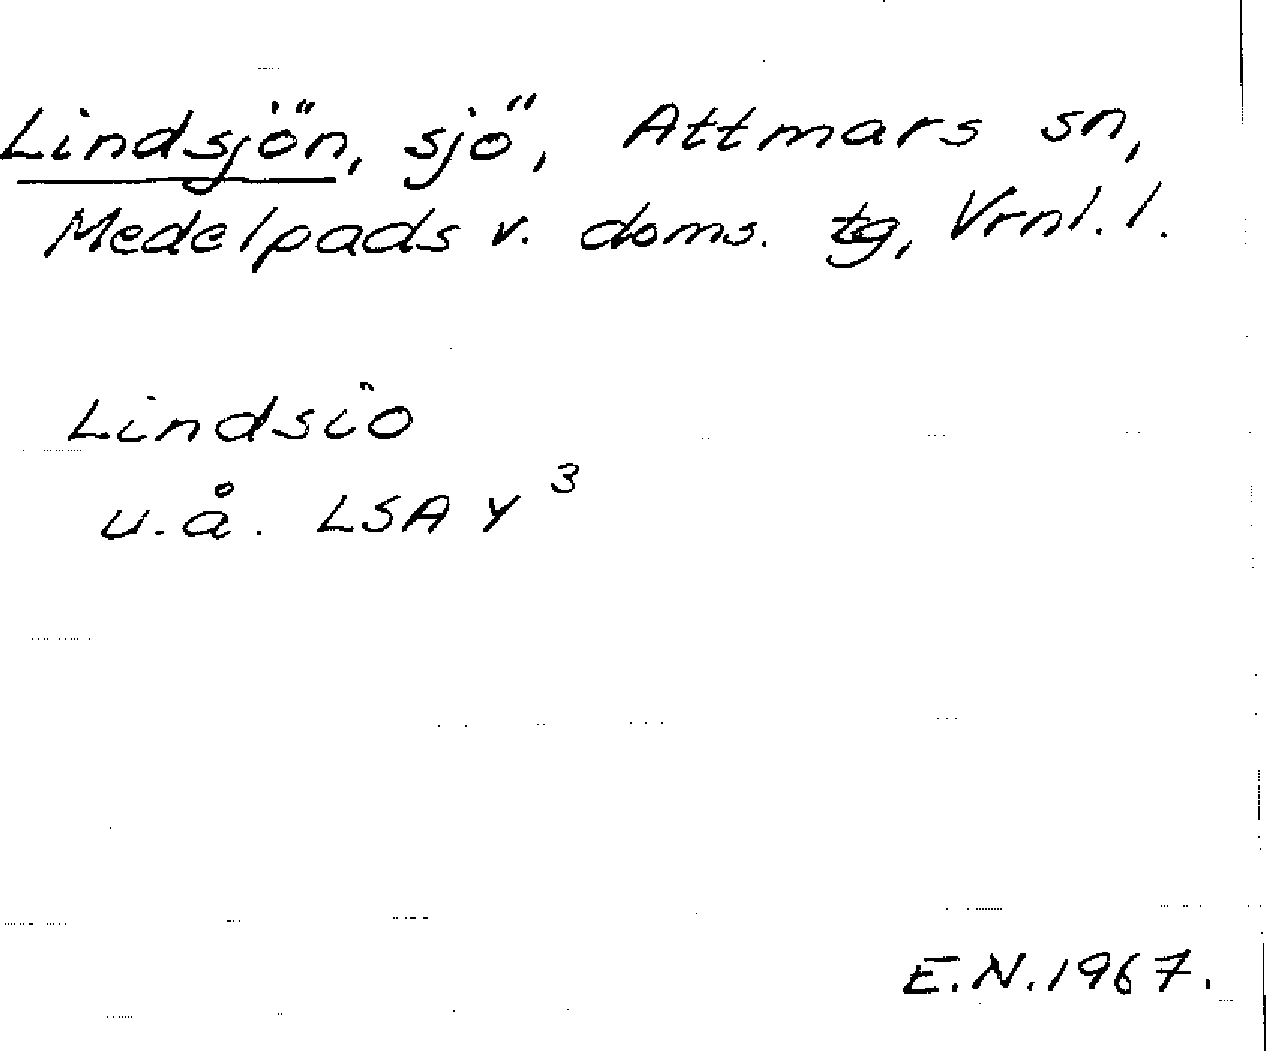 Lindsjön, sjö, Attmars sn,
Medelpads v. doms. tg, Vrnl. l.
Lindsiö
u.å. LSA Y 3
E.N. 1967.